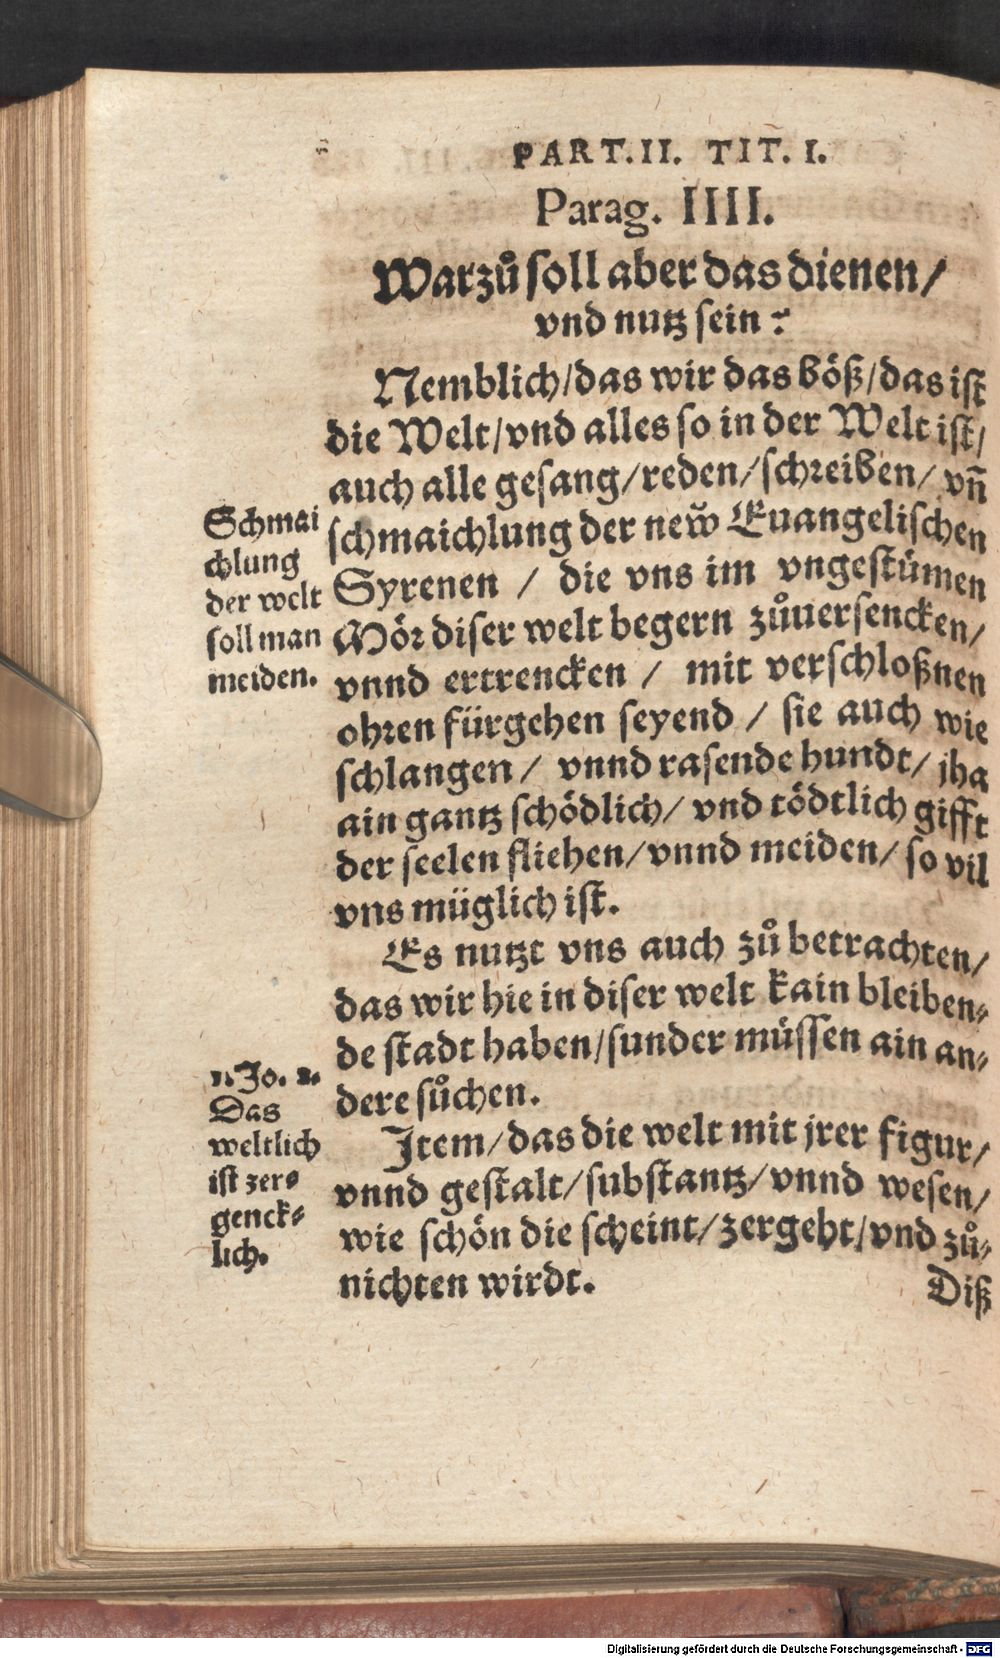 PART. II. TIT. I.
Parag. IIII.
Warzů soll aber das dienen/
vnd nutz sein?
Nemblich/das wir das böß/das ist
die Welt/vnd alles so in der Welt ist/
auch alle gesang/reden/schreiben/ vñ
schmaichlung der new̃ Euangelischen
Syrenen / die vns im vngestümen
Mör diser welt begern zůuersencken/
vnnd ertrencken / mit verschloßnen
ohren fürgehen seyend / sie auch wie
schlangen/ vnnd rasende hundt/ jha
ain gantz schödlich/ vnd tödtlich gifft
der seelen fliehen/vnnd meiden/ so vil
vns müglich ist.
Schmai
chlung
der welt
soll man
meiden.
Es nutzt vns auch zů betrachten/
das wir hie in diser welt kain bleiben-
de stadt haben/sunder müssen ain an-
dere sůchen.
Item/das die welt mit jrer figur/
vnnd gestalt/substantz/vnnd wesen/
wie schön die scheint/zergeht/vnd zů-
nichten wirdt.
1. Jo. 2.
Das
weltlich
ist zer-
genck-
lich.
Diß
Digitalisierung gefördert durch die Deutsche Forschungsgemeinschaft - DFG